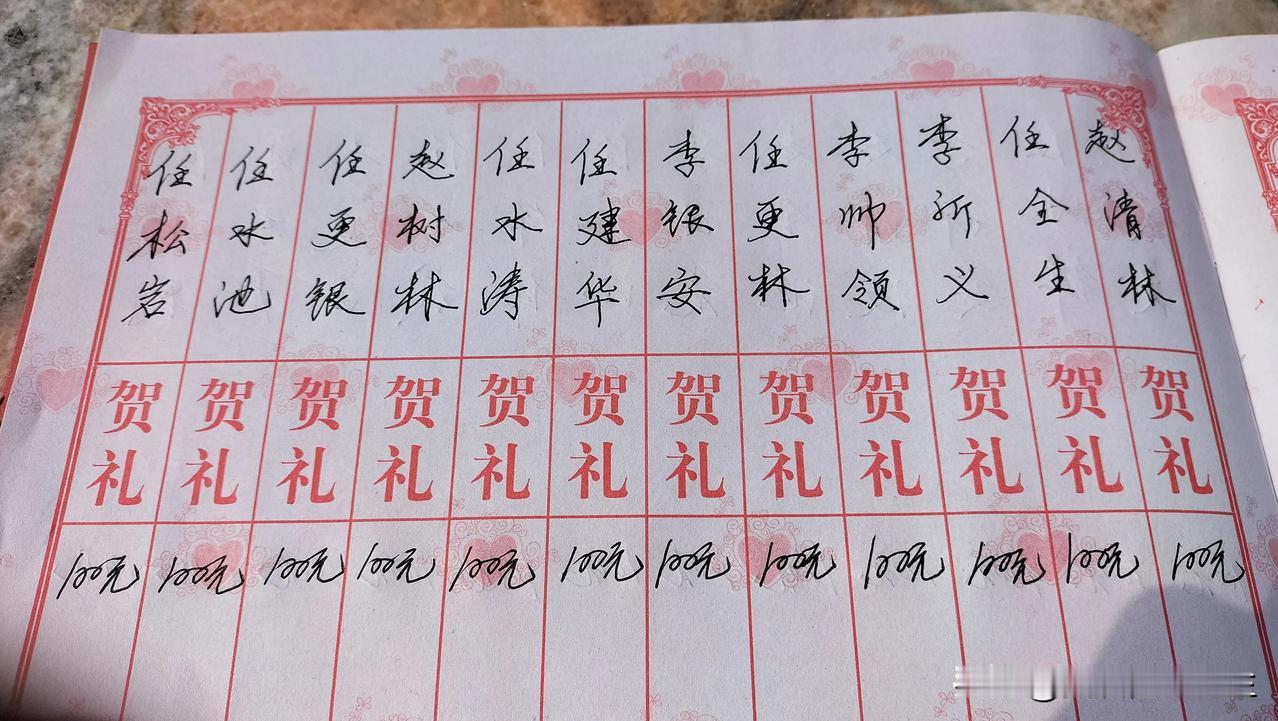 赵清林 贺礼 100元
任全生 贺礼 100元
李义 贺礼 100元
李帅领 贺礼 100元
任更林 贺礼 100元
李银安 贺礼 100元
任建华 贺礼 100元
任水涛 贺礼 100元
赵树林 贺礼 100元
任更银 贺礼 100元
任水池 贺礼 100元
任松岩 贺礼 100元